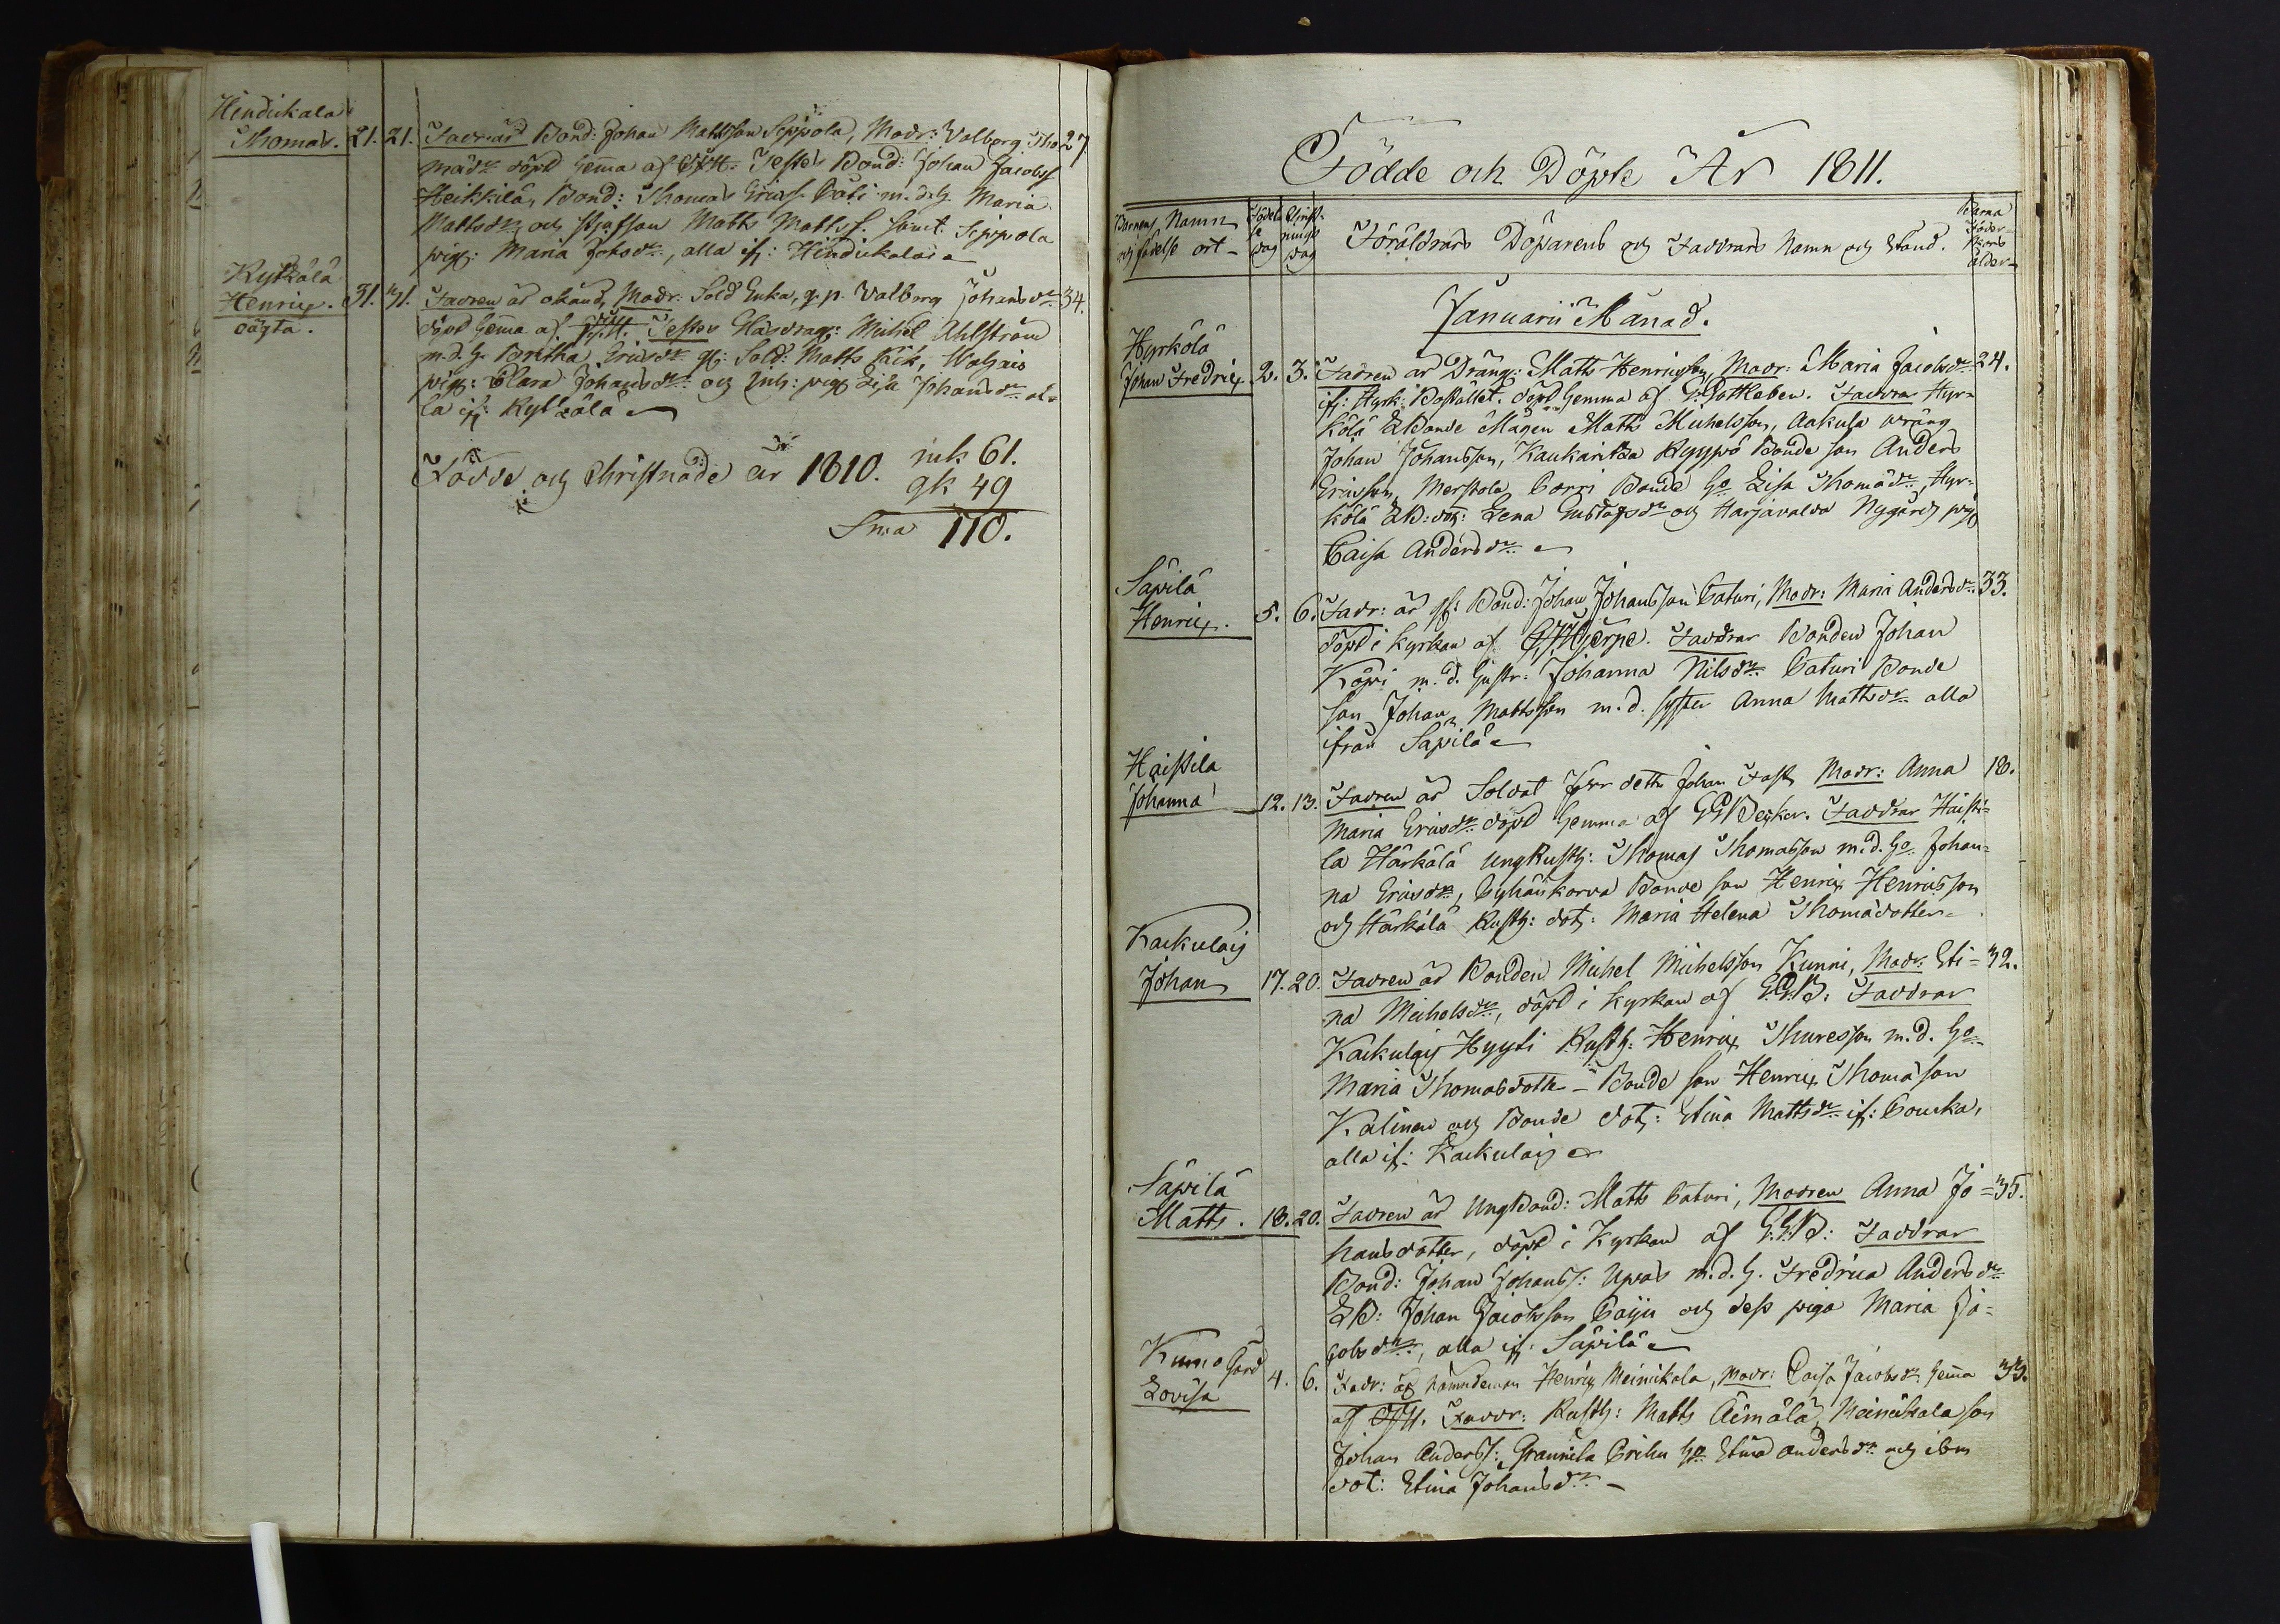 Hindickala
Thomas. 21. 21. Fadren är Bond: Johan Mattsson Seppola, Modr: Valborg Tho 27
mædr döpt hema af Testes Bond: Johan Jacobss
Heikkilä, Bond: Thomas Ericss m.d.h. Maria
Mattsdr och Matts Mattss. Seppola
pig: Maria Johsdr, alla if: Hindickala
Kyttälä
Henric. 31. 31. Fadren är okänd, Modr: Sold Enka, q.p. Valborg Johansdr 34.
oägta. döpt hema af Testes Michel Ahlström
m.d.h. Britha Ericsdr gf: Sold: Matts
pig: Clara Johansdr och inh: pig Lisa Johansdr al-
la if: Kyttälä
Födde och Christnade år 1810. mk 61.
qk 49
Sma 110.
Födde och Döpte År 1811.
Barnens Namn och födelse ort Födelse dag Christnings dag Föräldrars Döparens och Faddrars Namn och Stånd. Barna Föderskans ålder
Januarii Månad.
Hyrkölä
Johan Fredric 2. 3. Fadren är Dräng: Matts Henricson, Modr: Maria Jacobsdr 24.
if: Hyrk: Bostället. döpt hemma af G. Gottleben. Faddrar Hyr-
kölä Bonde Mågen Matts Michelsson, Aakula dräng
Johan Johansson, Kaukaritza Ryypö Bonde son Anders
Ericsson, Merstola Bonde ho Lisa Thomædr, Hyr-
kölä dot: Lena Gustafsdr och Harjavalda Nygårds pig
Caisa Andersdr
Säpilä
Henric. 5. 6. Fadr: är gf: Bond: Johan Johansson Caturi, Modr: Maria Andersdr 33.
döpt i kyrkan af G. Hjerpe. Faddrar Bonden Johan
Köpi m.d. hustr: Johanna Nilsdr Caturi Bonde
son Johan Mattsson m.d. syster Anna Mattsdr alla
ifrån Säpilä
Haistila
Johanna 12. 13. Fadren är Soldat Johan Fast, Modr: Anna 18.
Maria Ericsdr döpt hemma af GG Becker. Faddrar Haisti-
la Härkälä ungRusth: Thomas Thomasson m.d. ho Johan-
na Ericsdr, Cyhäkorva Bonde son Henric Henricsson
och Härkälä Rusth: dot: Maria Helena Thomædotter
Kackulais
Johan 17. 20. Fadren är Bonden Michel Michelsson Kunni, Modr: Sti- 32.
na Michelsdr, döpt i kyrkan af G.G.B: Faddrar
Kackulais Hyyti Rusth: Henric Thuresson m.d. ho
Maria Thomasdotter – Bonde son Henric Thomasson
Kalinen och Bonde dot: Stina Mattsdr if: Couska,
alla if: Kackulais
Säpilä
Matts. 18. 20. Fadren är UngBond: Matts Caturi, Modren Anna Jo- 35.
hansdotter, döpt i Kyrkan af G.G.B: Faddrar
Bond: Johan Johanss: Upas m.d.h. Fredrica Andersdr
LB: Johan Jacobsson Caiju och dess piga Maria Ja-
cobsdr, alla if: Säpilä
Kumo Gård
Lovisa 4. 6. Fadr: är nämndeman Henric Meinikala, Modr: Caisa Jacobsdr hema 33.
af Faddr: Rusth: Matts Äimälä, Meinikala son
Johan Anderss: Grannila Prihu ho Stina Andersdr och ibm
dot: Stina Johansdr